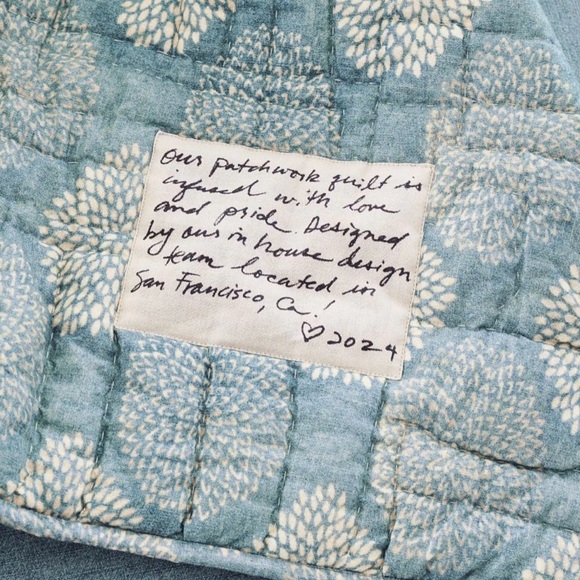 Our patchwork quilt is
infused with love
and pride. Designed
by our in house design
team located in
San Francisco, Ca!
♡ 2024